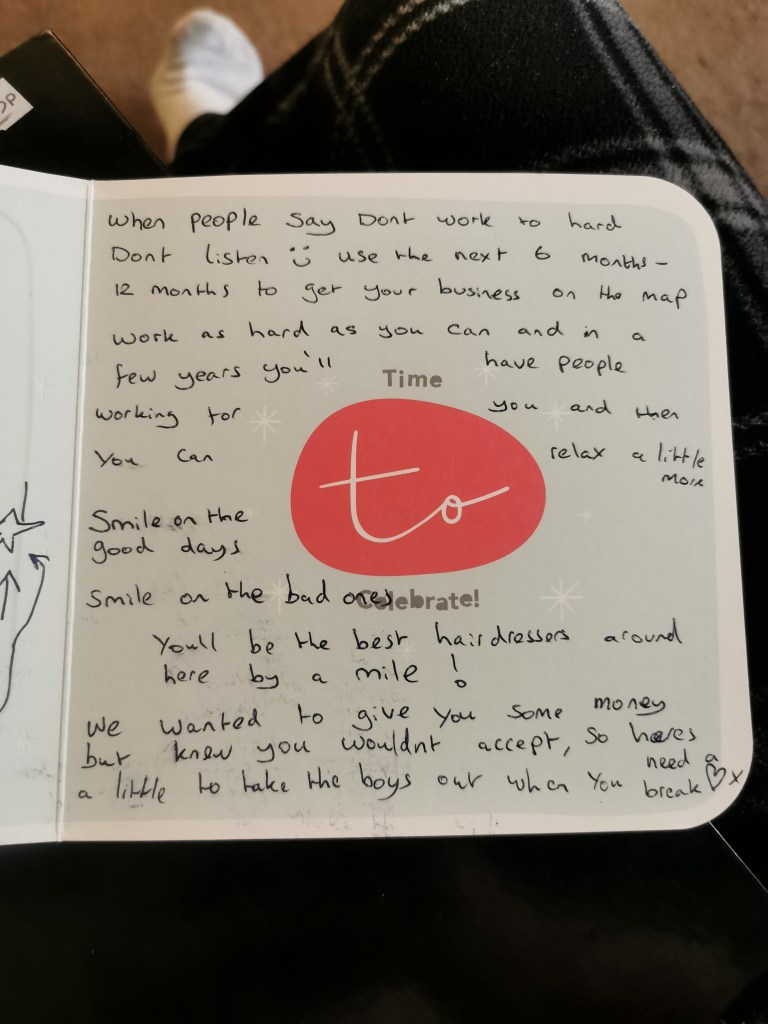 OP
When people say Dont work to hard
Dont listen use the next 6 months -
12 months to get your business on the map
work as hard as you can and in a
few years you'll have people
Time
working for you and then
You can relax a little
more
to
Smile on the
good days
Smile on the bad ones
Celebrate!
Youll be the best hairdressers around
here by a mile !
We wanted to give you some money
but knew you wouldnt accept, so heres
a little to take the boys out when you need a
break x